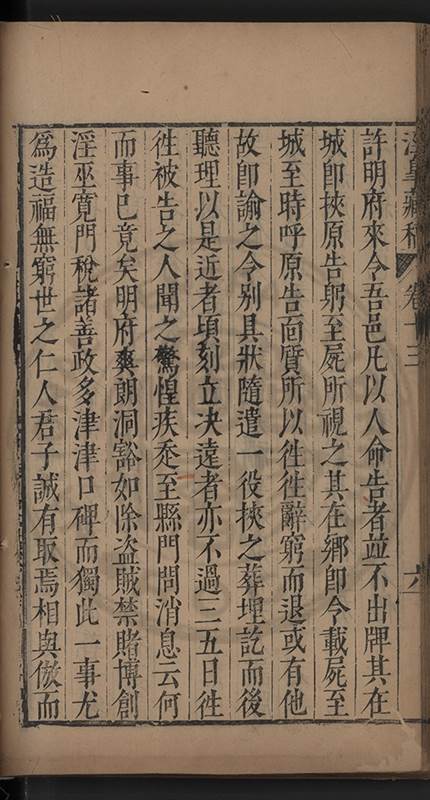 淫臯藏稿 卷十三 六
許明府來令吾邑凡以人命告者並不出牌其在
城卽挾原告躬至屍所視之其在鄉卽令載屍至
城至時呼原告面質所以徃徃辭窮而退或有他
故卽諭之令别具狀隨遣一役挾之葬埋訖而後
聽理以是近者頃刻立决遠者亦不過三五日徃
徃被告之人聞之驚惶疾走至縣門問消息云何
而事已竟矣明府爽朗洞豁如除盗賊禁賭博創
淫巫寛門稅諸善政多津津口碑而獨此一事尤
爲造福無窮世之仁人君子誠有取焉相與倣而